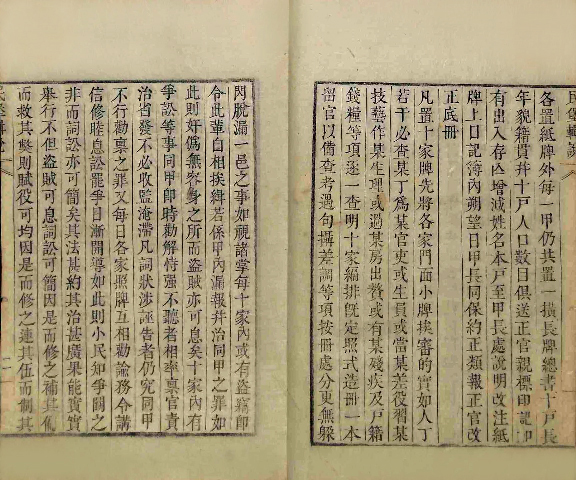 各置紙牌外每一甲仍共置一橫長牌總書十戶長
年貌籍貫并十戶人口數目俱送正官親標印記如
有出入存亡增減姓名本戶至甲長處說明改注紙
牌上日記簿內朔望日甲長同保約正類報正官改
正底冊
凡置十家牌先將各家門面小牌挨審的實如人丁
若干必查某丁爲某官吏或生員或當某差役習某
技藝作某生理或過某房出贅或有某殘疾及戶籍
錢糧等項逐一查明十家編排旣定照式造冊一本
留官以備查考遇勾攝差調等項按冊處分更無躱
閃脫漏一邑之事如視諸掌每十家內或有盜竊卽
令此輩自相挨緝若係甲內漏報幷治同甲之罪如
此則奸僞無容身之所而盜賊亦可息矣十家內有
爭訟等事同甲卽時勸解恃强不聽者相率稟官責
治省發不必收監淹滯凡詞狀涉誣告者仍究同甲
不行勸稟之罪又每日各家照牌互相勸諭務令講
信修睦息訟罷爭日漸開導如此則小民知爭鬬之
非而詞訟亦可簡矣其法甚約其治甚廣果能實實
舉行不但盜賊可息詞訟可簡因是而修之補其偏
而救其弊則賦役可均因是而修之連其伍而制其